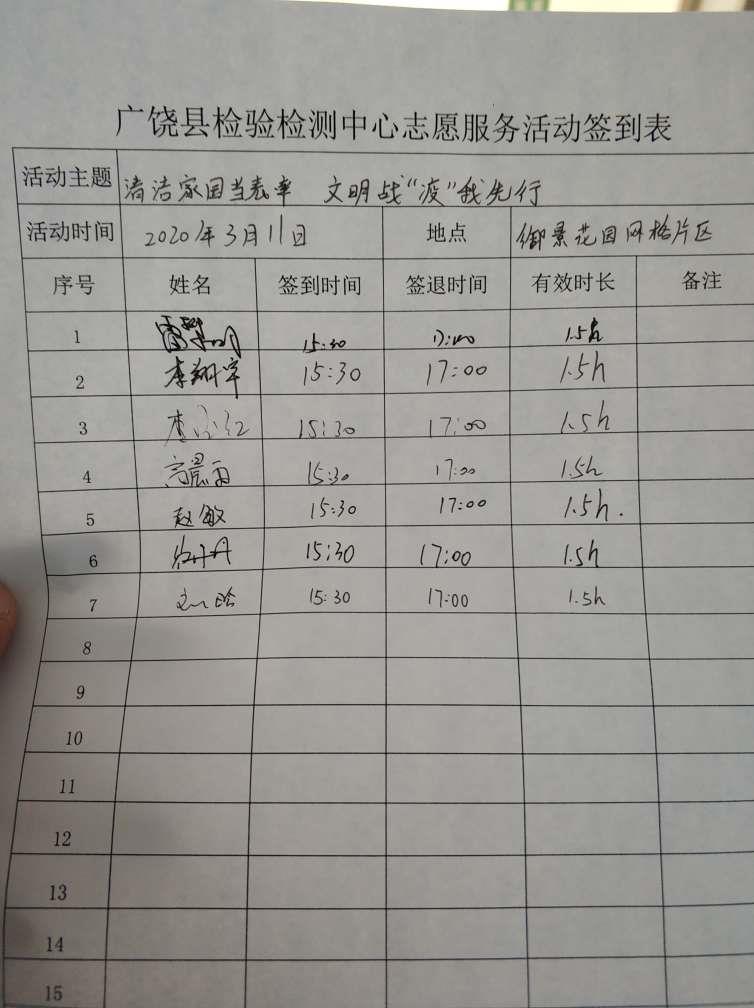 广饶县检验检测中心志愿服务活动签到表
活动主题 清洁家园当表率 文明战“疫”我先行
活动时间 2020年3月11日 地点 御景花园网格片区
序号 姓名 签到时间 签退时间 有效时长 备注
1 15:30 17:00 1.5h
2 李翔宇 15:30 17:00 1.5h
3 李 15:30 17:00 1.5h
4 高晨雨 15:30 17:00 1.5h
5 赵敏 15:30 17:00 1.5h.
6 15:30 17:00 1.5h
7 刘晗 15:30 17:00 1.5h
8
9
10
11
12
13
14
15